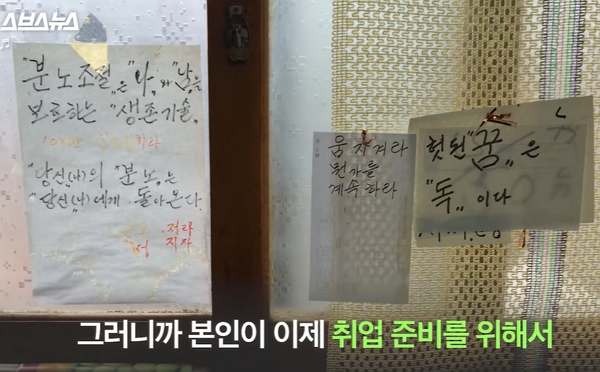 스브스뉴스
"분노조절„은 "나„와 "남„을
보호하는 "생존기술„
"당신(나)의 "분노„는
"당신(나)에게 돌아온다.
저라
성 지자
움직겨라
뭔가를
계속하라
헛된 "꿈„은
"독„이다
그러니까 본인이 이제 취업 준비를 위해서